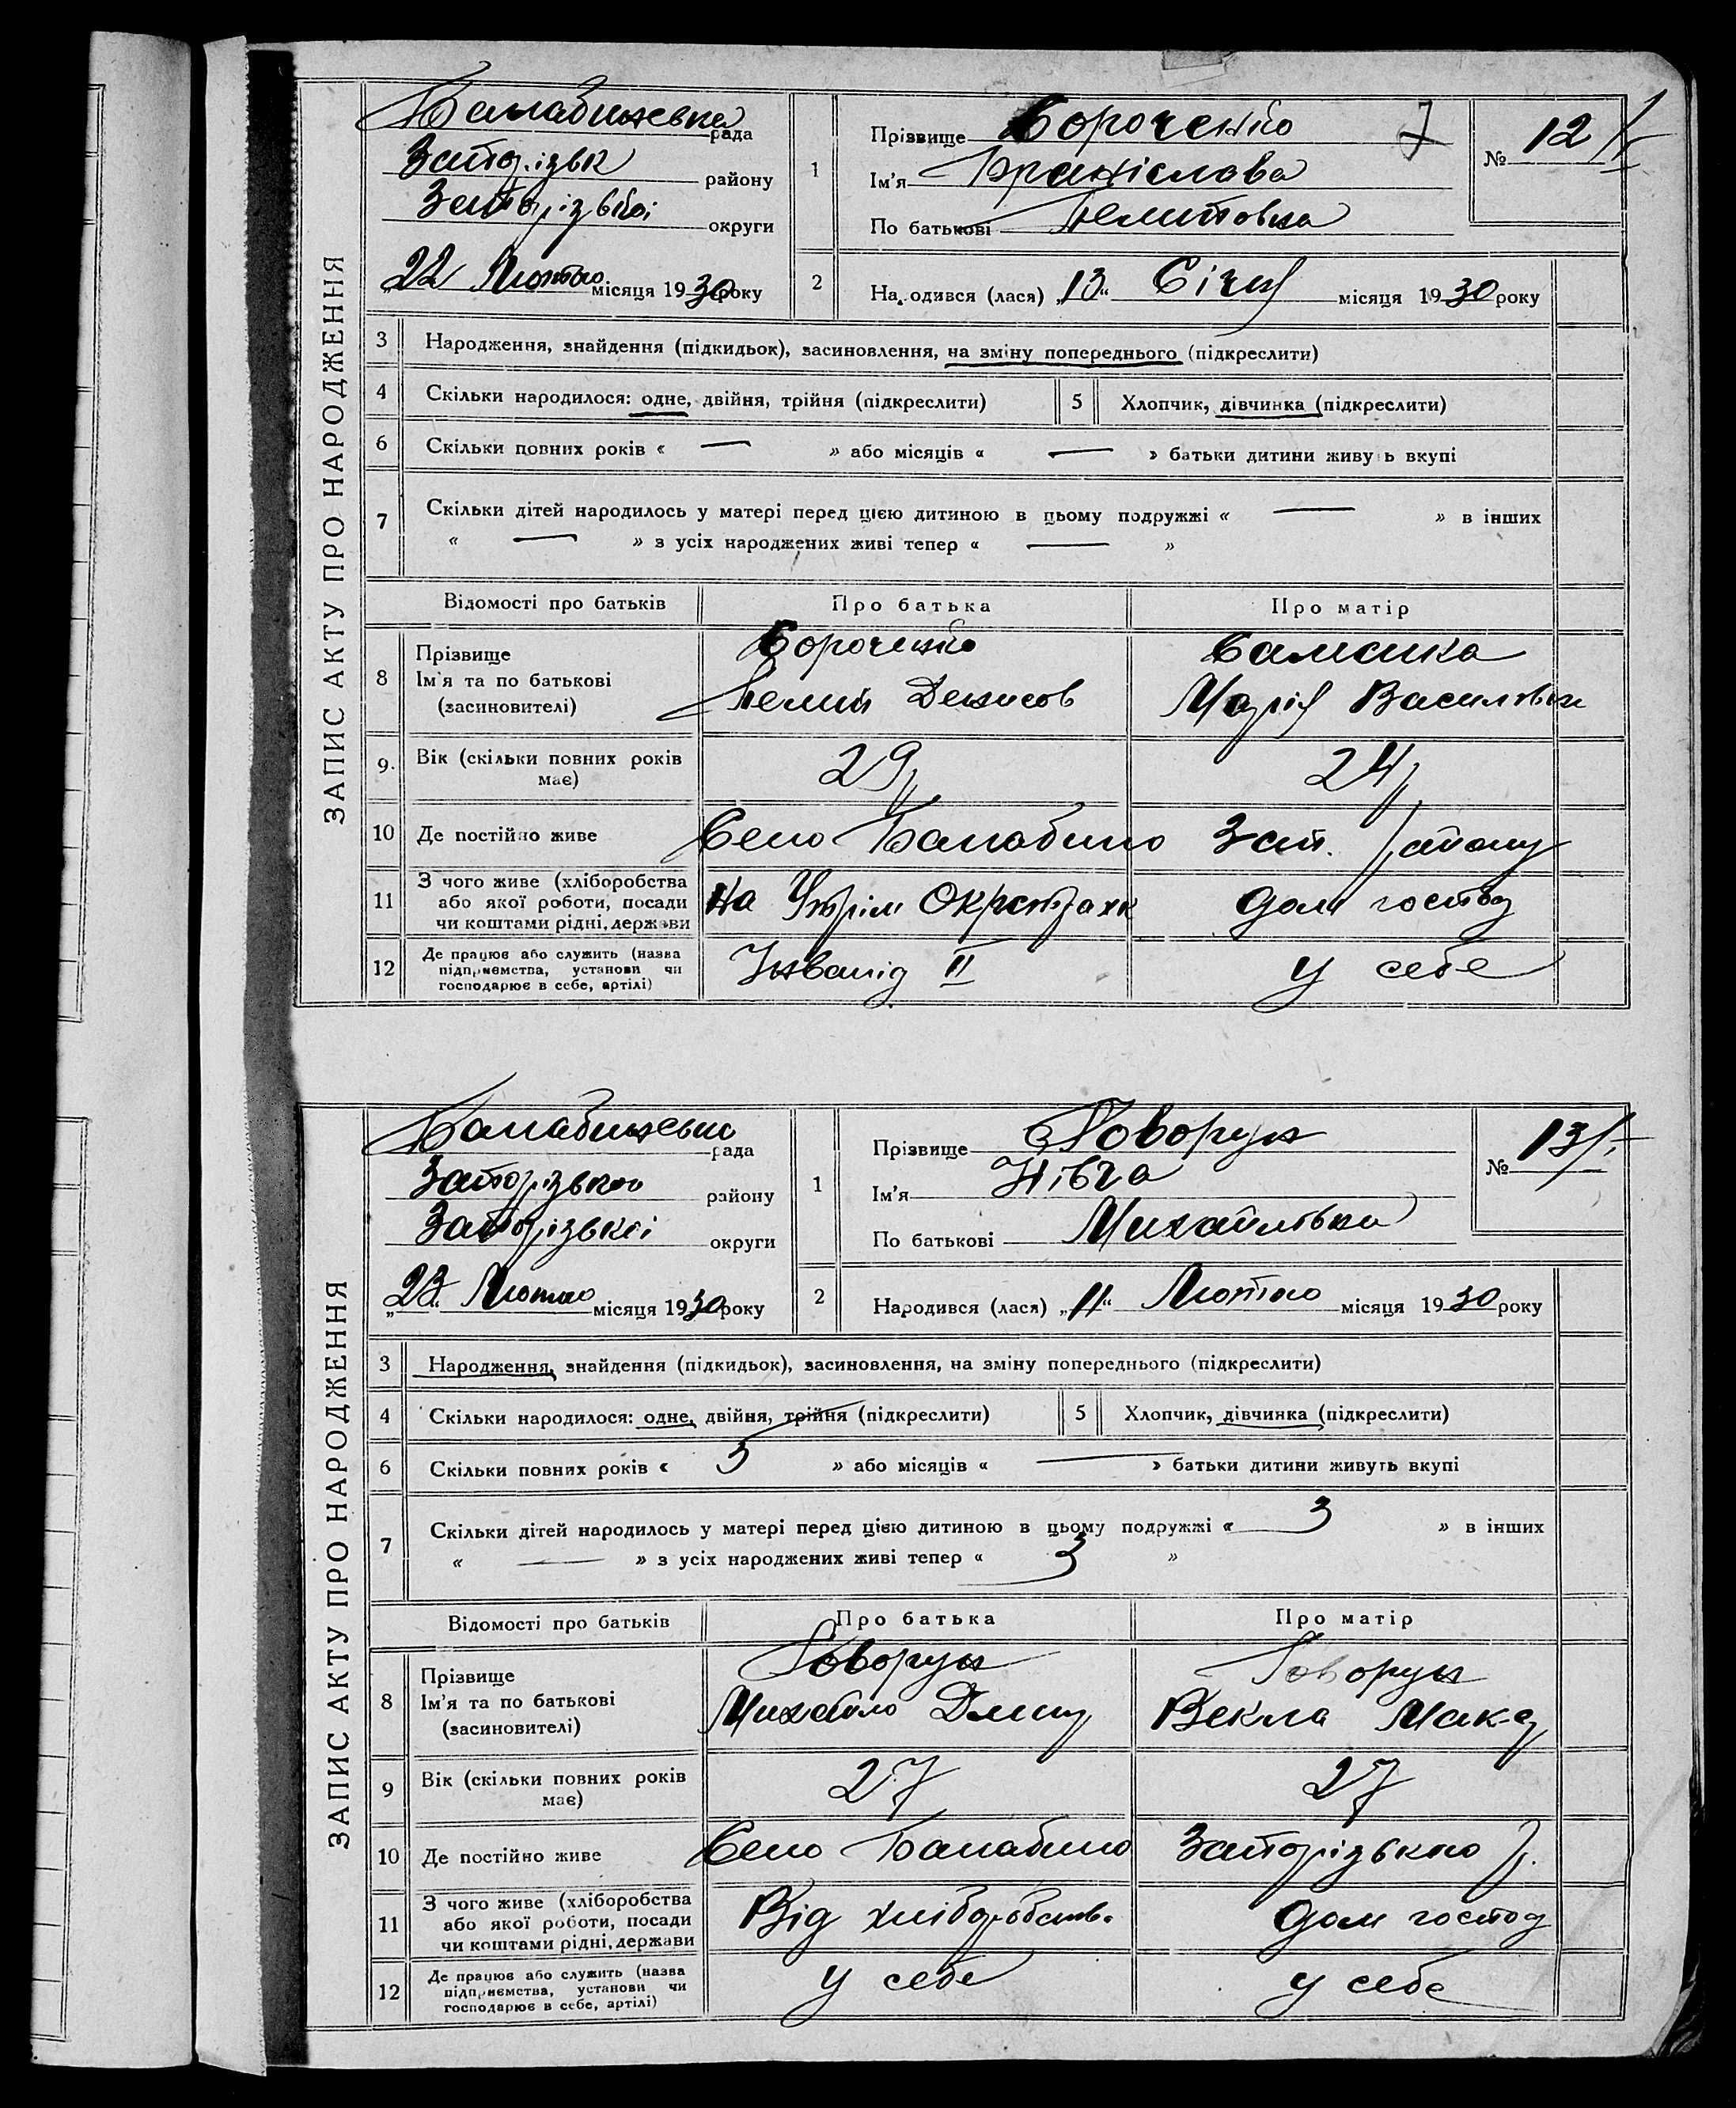 ЗАПИС АКТУ ПРО НАРОДЖЕННЯ
Балабинська рада
Запорізьк району
Запорізької округи
„22“ Лютого місяця 1930 року
1
Прізвище Сороченко 7
Ім'я Браніслава
По батькові
№ 12/I
2
Народився (лася) „13“ Січня місяця 1930 року
3 Народження, знайдення (підкидьок), засиновлення, на зміну попереднього (підкреслити)
4 Скільки народилося: одне, двійня, трійня (підкреслити) 5 Хлопчик, дівчинка (підкреслити)
6 Скільки повних років « — » або місяців « — » батьки дитини живуть вкупі
7 Скільки дітей народилось у матері перед цією дитиною в цьому подружжі « — » в інших
« — » з усіх народжених живі тепер « — »
Відомості про батьків Про батька Про матір
8 Прізвище
Ім'я та по батькові
(засиновителі)
Сороченко
Денисов
Самсика
Марія Василівна
9. Вік (скільки повних років має) 29 24
10 Де постійно живе Село Балабино Зап. району
11 З чого живе (хліборобства
або якої роботи, посади
чи коштами рідні, держави
На Утрім Окрстрахк
Дом господ
12 Де працює або служить (назва
підприємства, установи чи
господарює в себе, артілі)
Інвалід II
у себе
ЗАПИС АКТУ ПРО НАРОДЖЕННЯ
Балабинська рада
Запорізького району
Запорізької округи
„23“ Лютого місяця 1930 року
1
Прізвище Говорун
Ім'я
По батькові Михайлівна
№ 13/I
2
Народився (лася) „11“ Лютого місяця 1930 року
3 Народження, знайдення (підкидьок), засиновлення, на зміну попереднього (підкреслити)
4 Скільки народилося: одне, двійня, трійня (підкреслити) 5 Хлопчик, дівчинка (підкреслити)
6 Скільки повних років « 5 » або місяців « — » батьки дитини живуть вкупі
7 Скільки дітей народилось у матері перед цією дитиною в цьому подружжі « 3 » в інших
« — » з усіх народжених живі тепер « 3 »
Відомості про батьків Про батька Про матір
8 Прізвище
Ім'я та по батькові
(засиновителі)
Говорун
Михайло Дмит
Говорун
Векла Мак-д
9 Вік (скільки повних років має) 27 27
10 Де постійно живе Село Балабино Запорізького р.
11 З чого живе (хліборобства
або якої роботи, посади
чи коштами рідні, держави
Від хліборобств.
Дом господ
12 Де працює або служить (назва
підприємства, установи чи
господарює в себе, артілі)
у себе
у себе